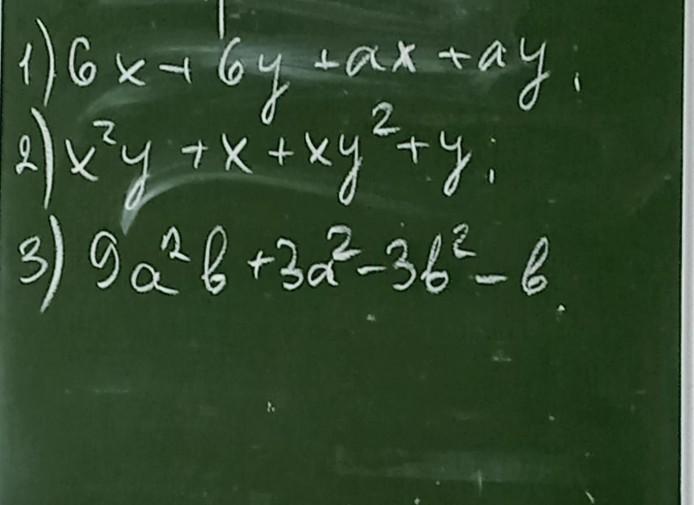 1) 6x + 6y + ax + ay;
2) x²y + x + xy² + y;
3) 9a²b + 3a² - 3b² - b